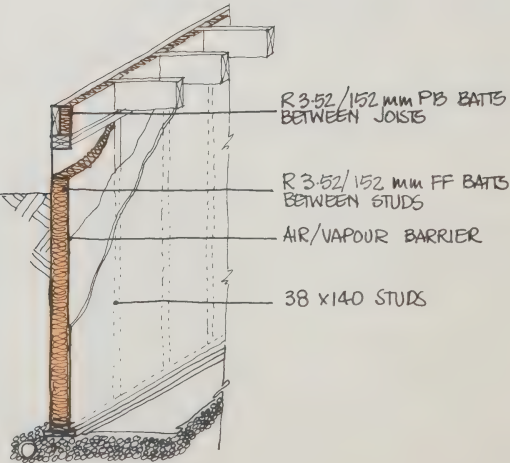 R 3·52/152 mm PB BATTS
BETWEEN JOISTS
R 3·52/152 mm FF BATTS
BETWEEN STUDS
AIR/VAPOUR BARRIER
38 x140 STUDS